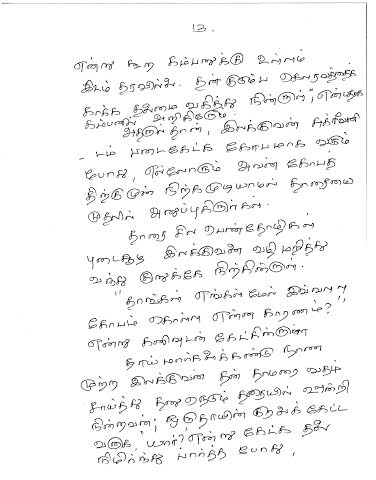 13.
என்று கூற கம்பனுக்கு உள்ளம்
இடம் தரவில்லை. தன் குடும்ப கௌரவத்தை
காக்க தலைமை வகித்து நின்றாள்", என்பதாக
கம்பன் அறிவிக்கும்
அதனால் தான், இலக்குவன் சுக்ரீவனி
- டம் படைகேட்க கோபமாக வரும்
போது, எல்லோரும் அவன் கோபத்
திற்கு முன் நிற்கமுடியாமல் தாரையை
முதலில் அனுப்புகிறார்கள்.
தாரை சில பெண்தோழிகள்
புடைசூழ இலக்குவனை வழிமறித்து
வந்து குறுக்கே நிற்கின்றாள்.
"தாங்கள் எங்கள் மேல் இவ்வளவு
கோபம் கொள்ள என்ன காரணம்?"
என்று கனிவுடன் கேட்கின்றாள்
தாய்மார்களைக்கண்டு நாண
முற்ற இலக்குவன் தன் தாமரை வதனம்
சாய்த்து தனு நெடும் தரையில் ஊன்றி
நின்றவன்; ஒரு தாயின் குரலுக் கேட்ட
வருக, 'யார்?' என்று கேட்க தலை
நிமிர்ந்து பார்த்த போது,